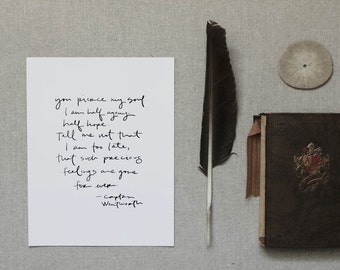 you pierce my soul
I am half agony
half hope
Tell me not that
I am too late,
that such precious
feelings are gone
for ever
- Captain
Wentworth